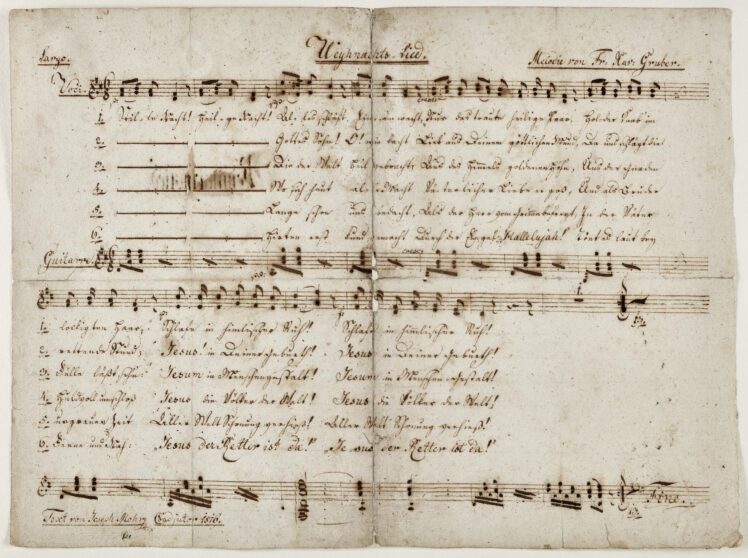 Weyhnachts-Lied.
Largo. Melodie von Fr. Xav: Gruber.
Voci.
pp. cresc:
1. Stille Nacht! Heilige Nacht! Alles schläft. Einsam wacht, Nur das traute heilige Paar. Holder Knab im
2. Gottes Sohn! O! wie lacht Lieb aus Deinem göttlichen Mund, Da uns schlägt die
3. Die der Welt Heil gebracht, Aus des Himmels goldenen Höhn, Aus der Gnaden
4. Wo sich heut alle Macht Väterlicher Liebe ergoß, Und als Bruder
5. Lange schon uns bedacht, Als der Herr vom Grimme befreyt, In der Väter
6. Hirten erst kundgemacht Durch der Engel Hallelujah! Tönt es laut bey
Guitarre cresc:
1. lockigten Haar; Schlafe in himlischer Ruh! Schlafe in himlischer Ruh!
2. rettende Stund; Jesus! in Deiner Geburth! Jesus in Deiner Geburth!
3. Fülle läßt sehn: Jesum in Menschengestalt! Jesum in Menschengestalt!
4. Huldvoll umschloß Jesus die Völker der Welt! Jesus die Völker der Welt!
5. urgrauer Zeit Aller Welt Schonung verhieß! Aller Welt Schonung verhieß!
6. Ferne und Nah: „Jesus der Retter ist da!" „Jesus der Retter ist da!"
Fine.
Text von Joseph Mohr Coadjutor 1816.